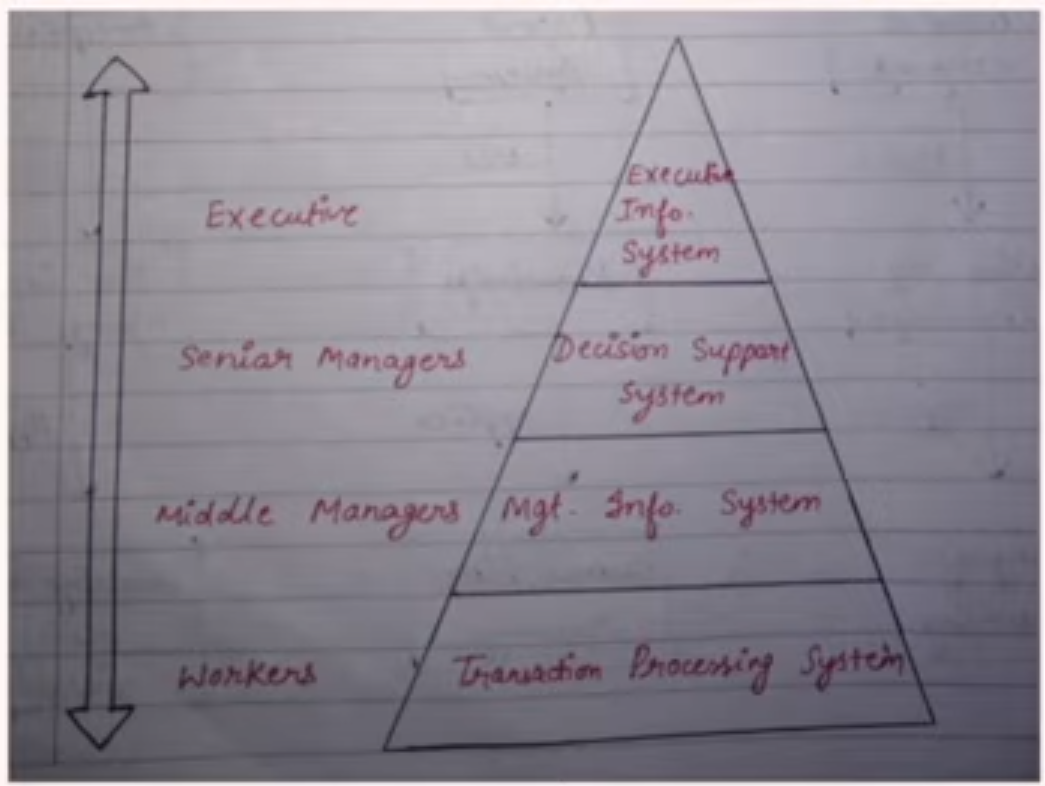 Executive
Executive
Info.
System
Seniar Managers
Decision Support
System
Middle Managers
Mgt. Info. System
Workers
Transaction Processing System